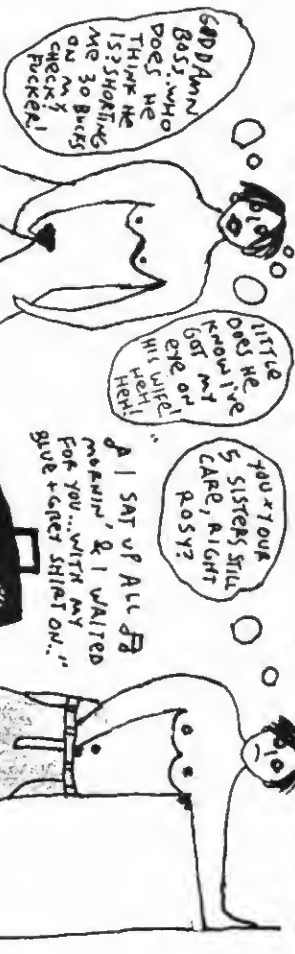 GODDAMN
BOSS..WHO
DOES HE
THINK HE
IS? SHORTING
ME 30 BUCKS
ON MY
CHECK?
FUCKER!
LITTLE
DOES HE
KNOW I'VE
GOT MY
EYE ON
HIS WIFE!
HEH HEH!
YOU + YOUR
5 SISTERS STILL
CARE, RIGHT
ROSY?
♫ I SAT UP ALL ♫
MORNIN' & I WAITED
FOR YOU...WITH MY
BLUE + GREY SHIRT ON.."